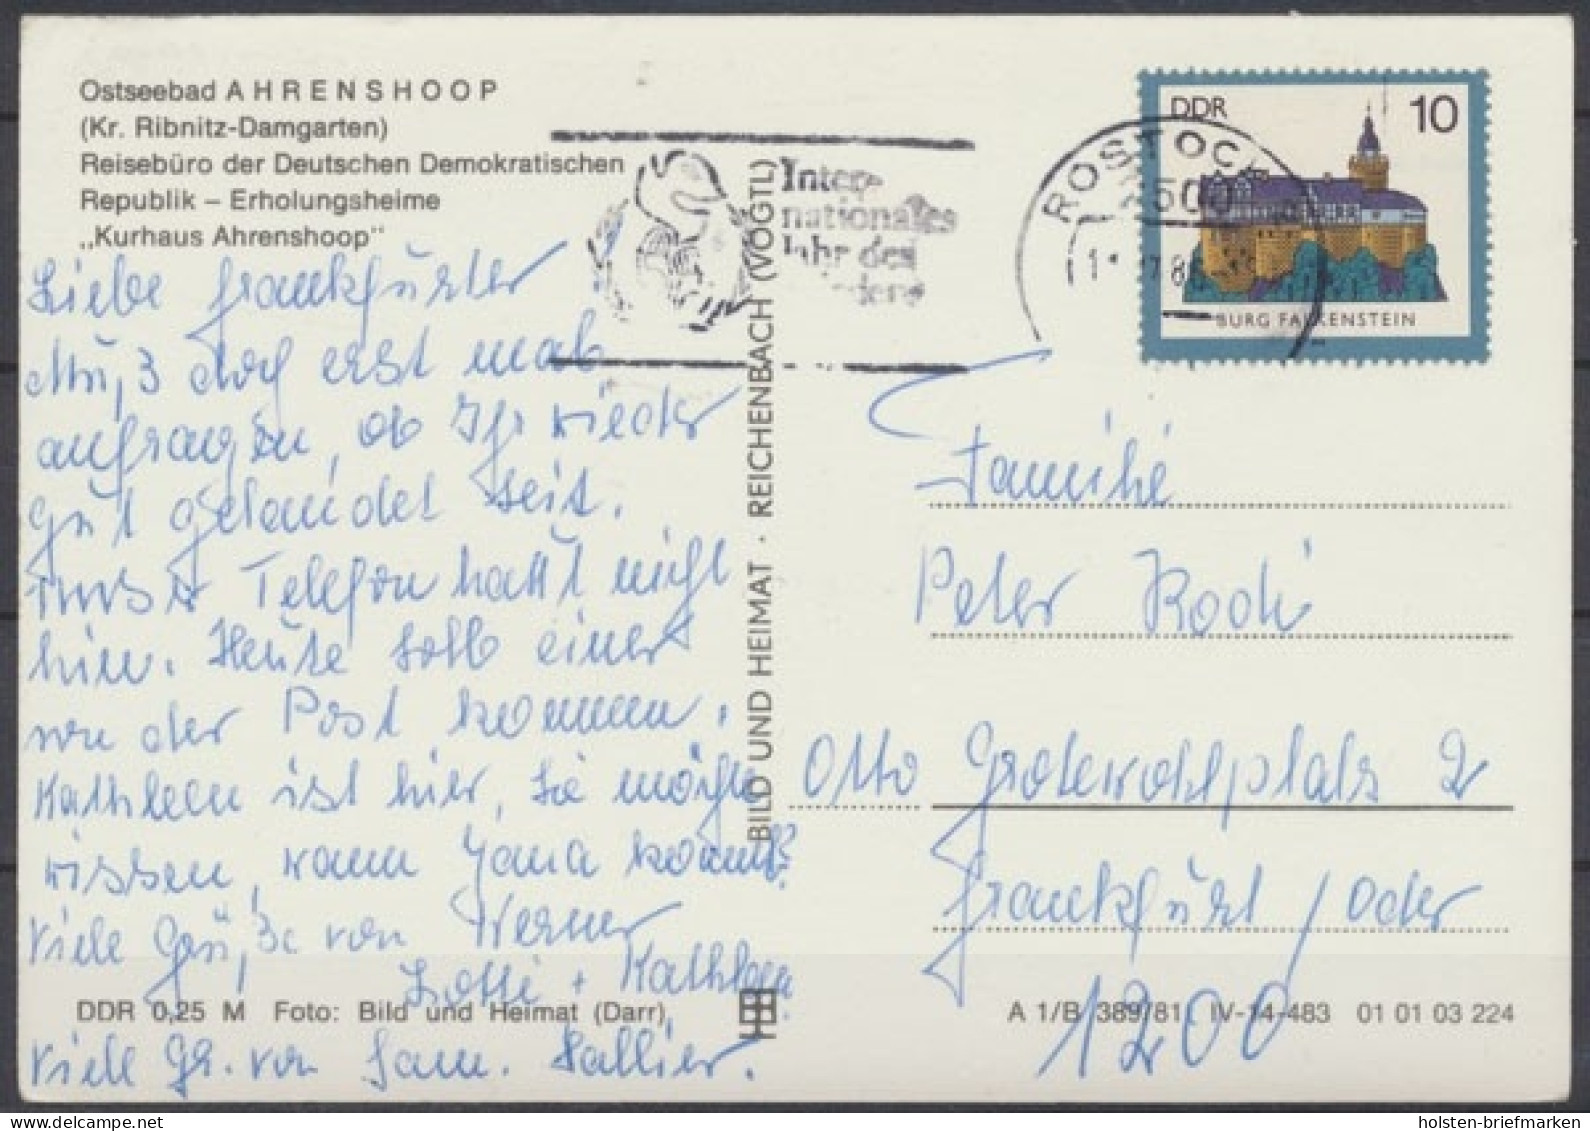 Ostseebad AHRENSHOOP
(Kr. Ribnitz-Damgarten)
Reisebüro der Deutschen Demokratischen
Republik – Erholungsheime
„Kurhaus Ahrenshoop"
Liebe Frankfurter
Muß doch erst mal
anfragen, ob Ihr wieder
gut gelandet seit.
Telefon hattt nicht
hin. Heute soll einer
von der Post kommen.
Kathleen ist hier, Sie möchte
wissen, wann Jana kommt?
Viele Grüße von Werner
Lotti + Kathleen
Viele Gr. von Fam.
DDR 0,25 M Foto: Bild und Heimat (Darr)
BILD UND HEIMAT · REICHENBACH (VOGTL)
Inter-
nationales
Jahr des
ROSTOCK
2500
DDR 10
BURG FALKENSTEIN
Familie
Peter
Otto Grotewohlplatz 2
Frankfurt / Oder
1200
A 1/B 389/81 IV-14-483 01 01 03 224
holsten-briefmarken